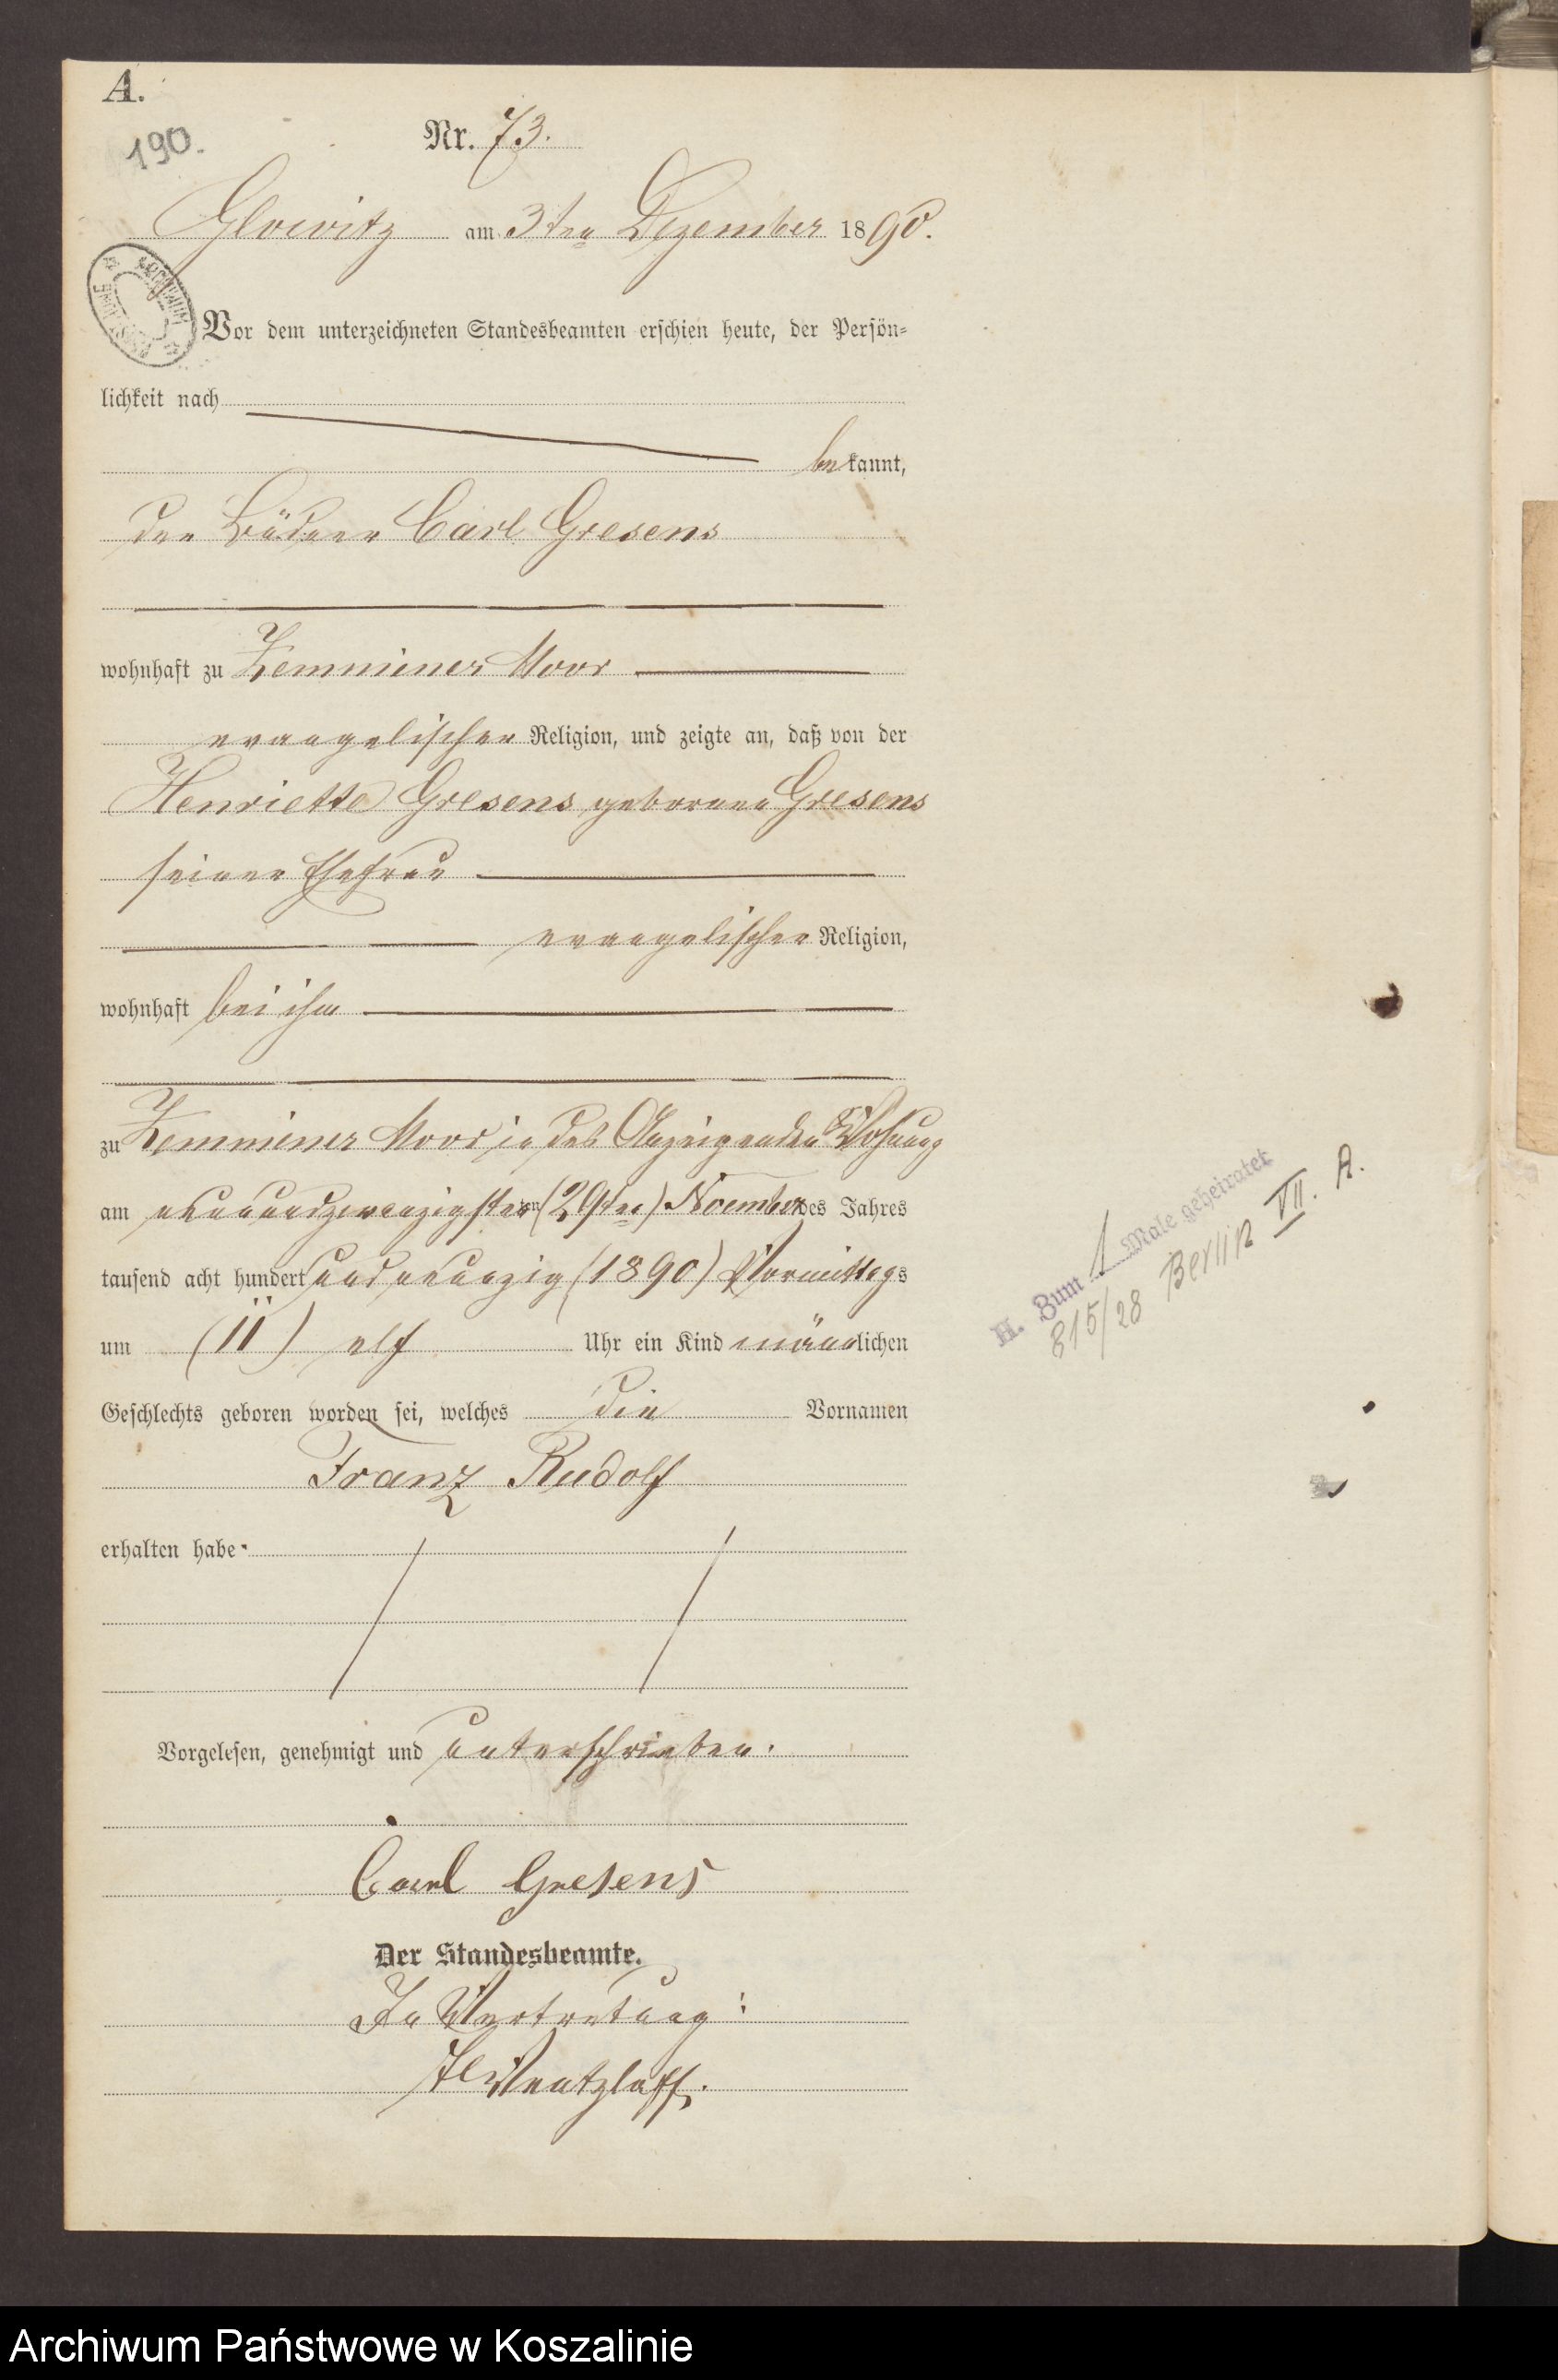 A.
190.
Nr. 73.
Glowitz am 3ten Dezember 1890.
Vor dem unterzeichneten Standesbeamten erschien heute, der Persön-
lichkeit nach
bekannt,
der Büdner Carl Gresens
wohnhaft zu Zemminer Moor
evangelischer Religion, und zeigte an, daß von der
Henriette Gresens geborene Gresens
seiner Ehefrau
evangelischer Religion,
wohnhaft bei ihm
zu Zemminer Moor in des Anzeigenden Wohnung
am neunundzwanzigsten (29ten) November des Jahres
tausend acht hundert und neunzig (1890) Vormittags
um (11) elf Uhr ein Kind männlichen
Geschlechts geboren worden sei, welches die Vornamen
Franz Rudolf
erhalten habe.
Vorgelesen, genehmigt und unterschrieben.
Carl Gresens
Der Standesbeamte.
In Vertretung:
Wentzlaff.
H. Zum 1 Male geheiratet
815/28 Berlin VII. A.
Archiwum Państwowe w Koszalinie